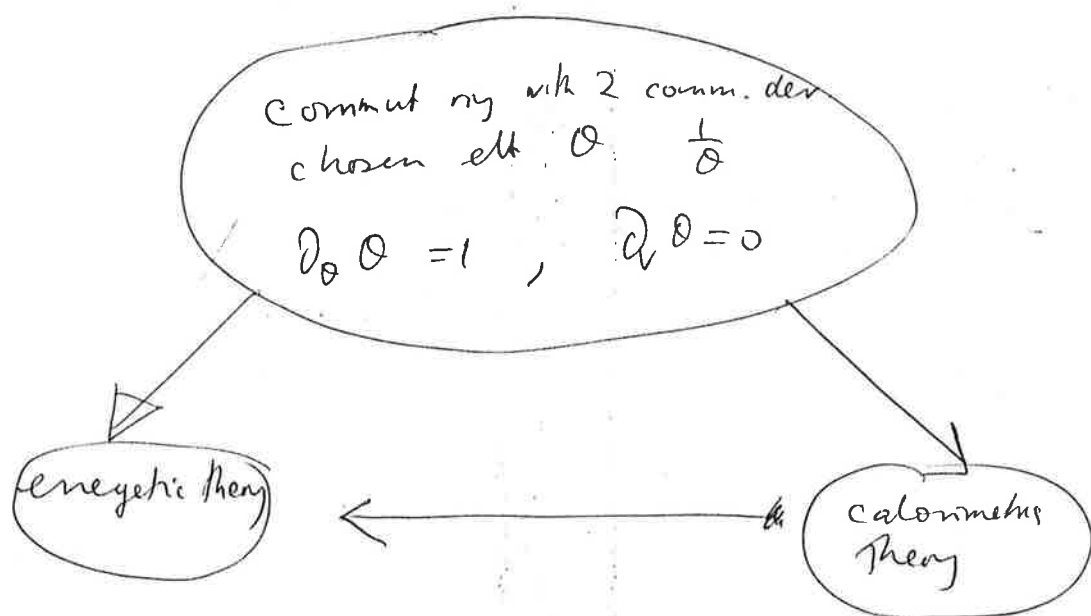 Commut ring with 2 comm. der.
chosen elt. θ 1/θ
∂_θ θ = 1 , ∂_v θ = 0
energetic theory
calorimetric
theory